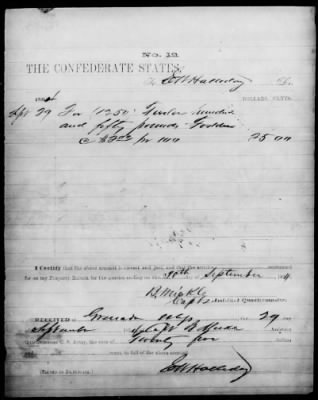 No. 12.
THE CONFEDERATE STATES,
To E W Halladay Dr.
186 4 DOLLARS. CENTS.
Sept 29 For "1250" Twelve hundred
and fifty pounds Fodder
@ $2.00 pr 100 25 00
I Certify that the above account is correct and just, and that the articles
for on my Property Return for the quarter ending on the 30th September 1864
Capt & Assistant Quartermaster.
RECEIVED at Grenada Miss 29 day
September of Capt Assistant
Quartermaster C. S. Army, the sum of Twenty five
cents, in full of the above account.
E W Halladay
(SIGNED IN DUPLICATE.)